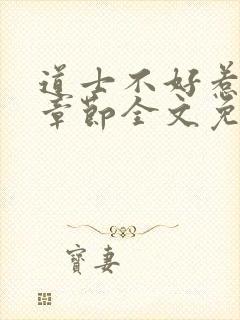 道士不好惹
章節全文免
寶妻